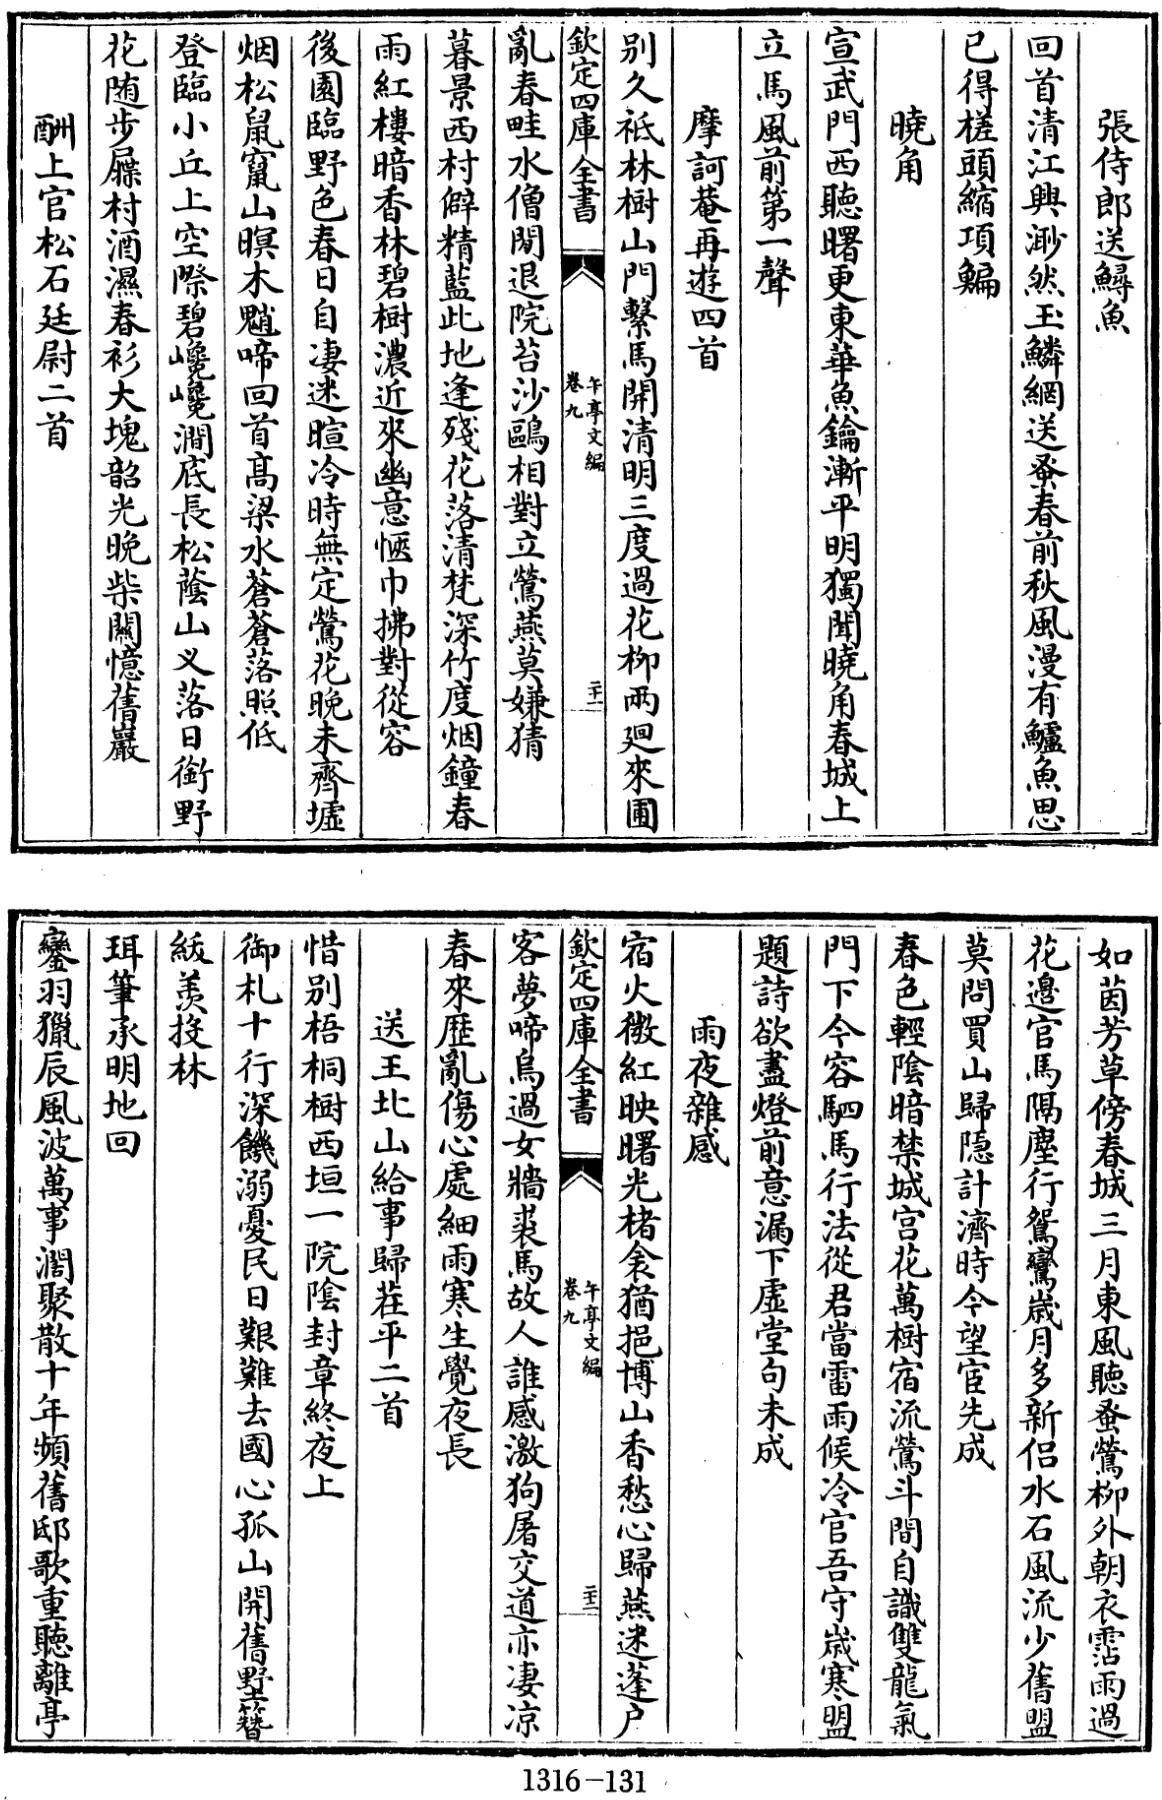 張侍郎送鱘魚
回首清江興渺然玉鱗網送蚤春前秋風漫有鱸魚思
已得槎頭縮項鯿
曉角
宣武門西聽曙更東華魚鑰漸平明獨聞曉角春城上
立馬風前第一聲
摩訶菴再遊四首
别久祇林樹山門繫馬開清明三度過花柳兩廻來圃
欽定四庫全書
午亭文編
卷九
二十一
亂春畦水僧閒退院苔沙鷗相對立鶯燕莫嫌猜
暮景西村僻精藍此地逢殘花落清梵深竹度烟鐘春
雨紅樓暗香林碧樹濃近來幽意愜巾拂對從容
後園臨野色春日自凄迷暄冷時無定鶯花晚未齊墟
烟松鼠竄山暝木魈啼回首高梁水蒼蒼落照低
登臨小丘上空際碧巉巉澗底長松蔭山义落日銜野
花随步屧村酒濕春衫大塊韶光晚柴關憶舊巖
酬上官松石廷尉二首
如茵芳草傍春城三月東風聽蚤鶯柳外朝衣霑雨過
花邊官馬隔塵行鴛鸞歲月多新侣水石風流少舊盟
莫問買山歸隠計濟時今望宦先成
春色輕陰暗禁城宫花萬樹宿流鶯斗間自識雙龍氣
門下今容駟馬行法從君當雷雨候冷官吾守歲寒盟
題詩欲盡燈前意漏下虛堂句未成
雨夜雜感
宿火微紅映曙光楮衾猶挹博山香愁心歸燕迷蓬户
欽定四庫全書
午亭文編
卷九
二十二
客夢啼烏過女牆裘馬故人誰感激狗屠交道亦凄凉
春來歷亂傷心處細雨寒生覺夜長
送王北山給事歸茌平二首
惜别梧桐樹西垣一院陰封章終夜上
御札十行深饑溺憂民日艱難去國心孤山開舊墅簪
紱羡投林
珥筆承明地回
鑾羽獵辰風波萬事濶聚散十年頻舊邸歌重聽離亭
1316-131